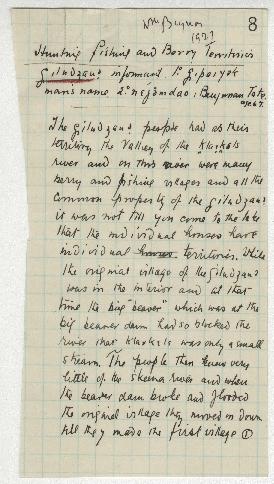 Wm Beynon
8
1927
Hunting fishing and Berry Territories
Giludzau? informant 1°
mans name 2°: Benjamin Tate
age 67.
The Giludzau? people had as their
territory the valley of the
river and on this river were many
berry and fishing villages and all the
common property of the Giludzau?
it was not till you come to the lake
that the individual houses have
individual houses territories. While
the original village of the Giludzau?
was in the interior and at that
time the big "beaver" which was at the
big beaver dam had so blocked the
river that was only a small
stream. The people then knew very
little of the Skeena river and when
the beaver dam broke and flooded
the original village they moved on down
till they made the first village ①